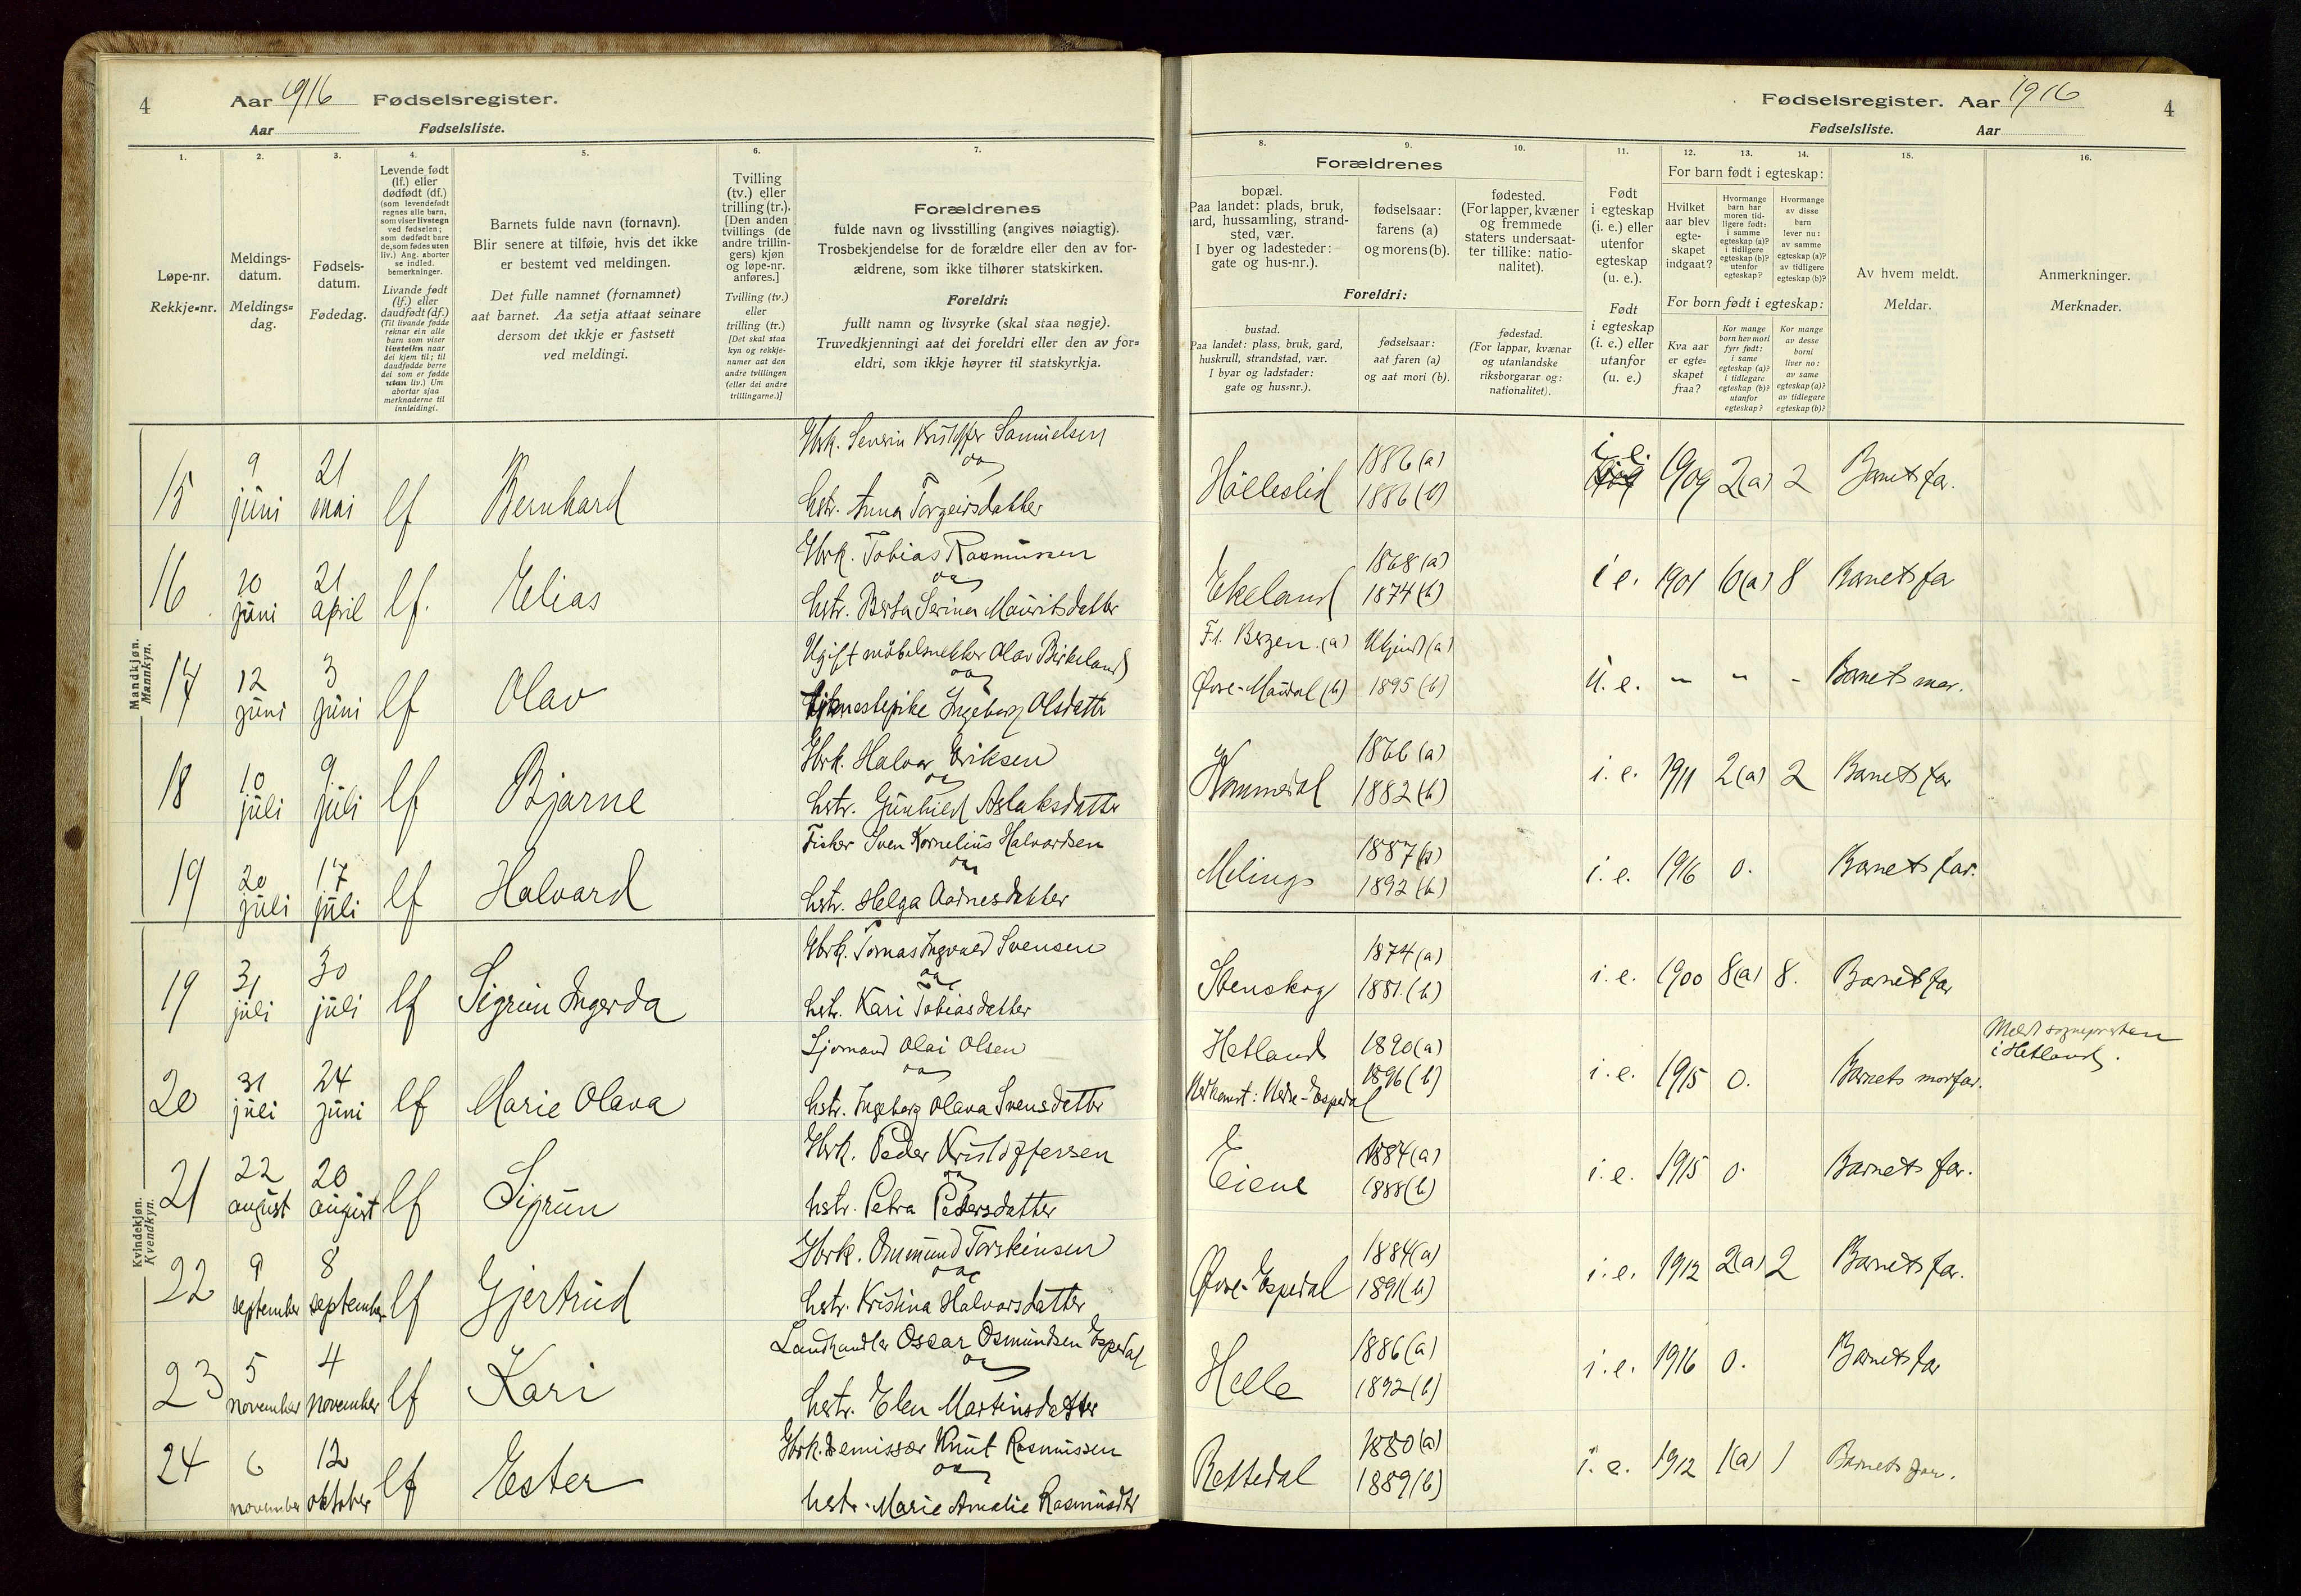 4 Aar 1916 Fødselsregister.
Aar Fødselsliste.
1.
2.
3.
4.
5.
6.
7.
Løpe-nr.
Rekkje-nr.
Meldings-
datum.
Meldings-
dag.
Fødsels-
datum.
Fødedag.
Levende født
(lf.) eller
dødfødt (df.)
(som levendefødt
regnes alle barn,
som viser livstegn
ved fødselen;
som dødfødt bare
de, som fødes uten
liv.) Ang. aborter
se indled.
bemerkninger.
Livande født
(lf.) eller
daudfødt (df.)
(Til livande fødde
reknar ein alle
barn som viser
livsteikn naar
dei kjem til; til
daudfødde berre
dei som er fødde
utan liv.) Um
abortar sjaa
merknaderne til
innleidingi.
Barnets fulde navn (fornavn).
Blir senere at tilføie, hvis det ikke
er bestemt ved meldingen.
Det fulle namnet (fornamnet)
aat barnet. Aa setja attaat seinare
dersom det ikkje er fastsett
ved meldingi.
Tvilling
(tv.) eller
trilling (tr.).
[Den anden
tvillings (de
andre trillin-
gers) kjøn
og løpe-nr.
anføres.]
Tvilling (tv.)
eller
trilling (tr.)
[Det skal staa
kyn og rekkje-
numer aat den
andre tvillingen
(eller dei andre
trillingarne.)]
Forældrenes
fulde navn og livsstilling (angives nøiagtig).
Trosbekjendelse for de forældre eller den av for-
ældrene, som ikke tilhører statskirken.
Foreldri:
fullt namn og livsyrke (skal staa nøgje).
Truvedkjenningi aat dei foreldri eller den av for-
eldri, som ikkje høyrer til statskyrkja.
Fødselsregister. Aar 1916 4
Fødselsliste. Aar
8.
9.
10.
11.
12.
13.
14.
15.
16.
Forældrenes
bopæl.
Paa landet: plads, bruk,
gard, hussamling, strand-
sted, vær.
I byer og ladesteder:
gate og hus-nr.).
fødselsaar:
farens (a)
og morens (b).
fødested.
(For lapper, kvæner
og fremmede
staters undersaat-
ter tillike: natio-
nalitet).
Foreldri:
bustad.
Paa landet: plass, bruk, gard,
huskrull, strandstad, vær.
I byar og ladstader:
gate og hus-nr.).
fødselsaar:
aat faren (a)
og aat mori (b).
fødestad.
(For lappar, kvænar
og utanlandske
riksborgarar og:
nationalitet).
Født
i egteskap
(i. e.) eller
utenfor
egteskap
(u. e.).
Født
i egteskap
(i. e.) eller
utanfor
(u. e.)
For barn født i egteskap:
Hvilket
aar blev
egte-
skapet
indgaat?
Hvormange
barn har
moren tid-
ligere født:
i samme
egteskap (a)?
i tidligere
egteskap (b)?
utenfor
egteskap?
Hvormange
av disse
barn
lever nu:
av samme
egteskap (a)?
av tidligere
egteskap (b)?
For born født i egteskap:
Kva aar
er egte-
skapet
fraa?
Kor mange
born hev mori
fyrr født:
i same
egteskap (a)?
i tidlegare
egteskap (b)?
utanfor
egteskap?
Kor mange
av desse
borni
liver no:
av same
egteskap (a)?
av tidlegare
egteskap (b)?
Av hvem meldt.
Meldar.
Anmerkninger.
Merknader.
Mandkjøn.
Mannkyn.
15 9 juni 21 mai lf Bernhard
Gbrk. Severin Kristoffer Samuelsen
og
hstr. Anna Torgeirsdatter
Hölleslid 1886 (a) 1886 (b) i e. 1909 2(a) 2 Barnets far.
16 10 juni 21 april lf. Elias
Gbrk. Tobias Rasmussen
og
hstr. Berta Serina Mauritsdatter
Ekeland 1868 (a) 1874 (b) i e. 1901 6(a) 8 Barnets far
17 12 juni 3 juni lf Olav
Ugift möbelsnekker Olav Birkeland
og
tjenestepike Ingeborg Olsdattr
F.t. Bergen. (a) Øvre-Maudal (b) Ukjend (a) 1895 (b) u. e. - - - Barnets mor.
18 10 juli 9. juli lf Bjarne
Gbrk. Halvor Eriksen
og
hstr. Gunhild Aslaksdatter
Kommedal 1866 (a) 1882 (b) i. e. 1911 2(a) 2 Barnets far
19 20 juli 17 juli lf Halvard
Fisker Sven Kornelius Halvordsen
og
hstr. Helga Aadnesdatter
Meling 1887 (a) 1892 (b) i. e. 1916 0. Barnets far.
Kvindekjøn.
Kvendkyn.
19 31 juli 30 juli lf Sigrun Ingerda
Gbrk. Tomas Ingvald Svensen
og
hstr. Kari Tobiasdatter
Stenskog 1874 (a) 1881. (b) i. e. 1900 8(a) 8. Barnets far
20 31 juli 24 juni lf Marie Olava
Sjømand Olai Olsen
og
hstr. Ingeborg Olava Svensdattr
Hetland Nedkomst: Nedre-Espedal 1890 (a) 1896 (b) i. e. 1915 0. Barnets morfar. Meldt sognepresten
i Hetland.
21 22 august 20 august lf Sigrun
Gbrk. Peder Kristoffersen
og
hstr. Petra Pedersdatter
Eiene 1884 (a) 1888 (b) i. e. 1915 0. Barnets far.
22 9 september 8 september lf Gjertrud
Gbrk. Osmund Torsteinsen
og
hstr. Kristina Halvorsdatter
Øvre-Espedal 1884 (a) 1891 (b) i. e. 1912 2(a) 2 Barnets far.
23 5 november 4 november lf Kari
Landhandler Oscar Osmundsen Espedal
og
hstr. Elen Martinsdatter
Helle 1886 (a) 1892 (b) i. e. 1916 0. Barnets far
24 6 november 12 oktober lf Ester
Gbrk. & emissær Knut Rasmussen
og
hstr. Marie Amalie Rasmusdtr
Rettedal 1880 (a) 1889 (b) i. e. 1912 1(a) 1 Barnets far.